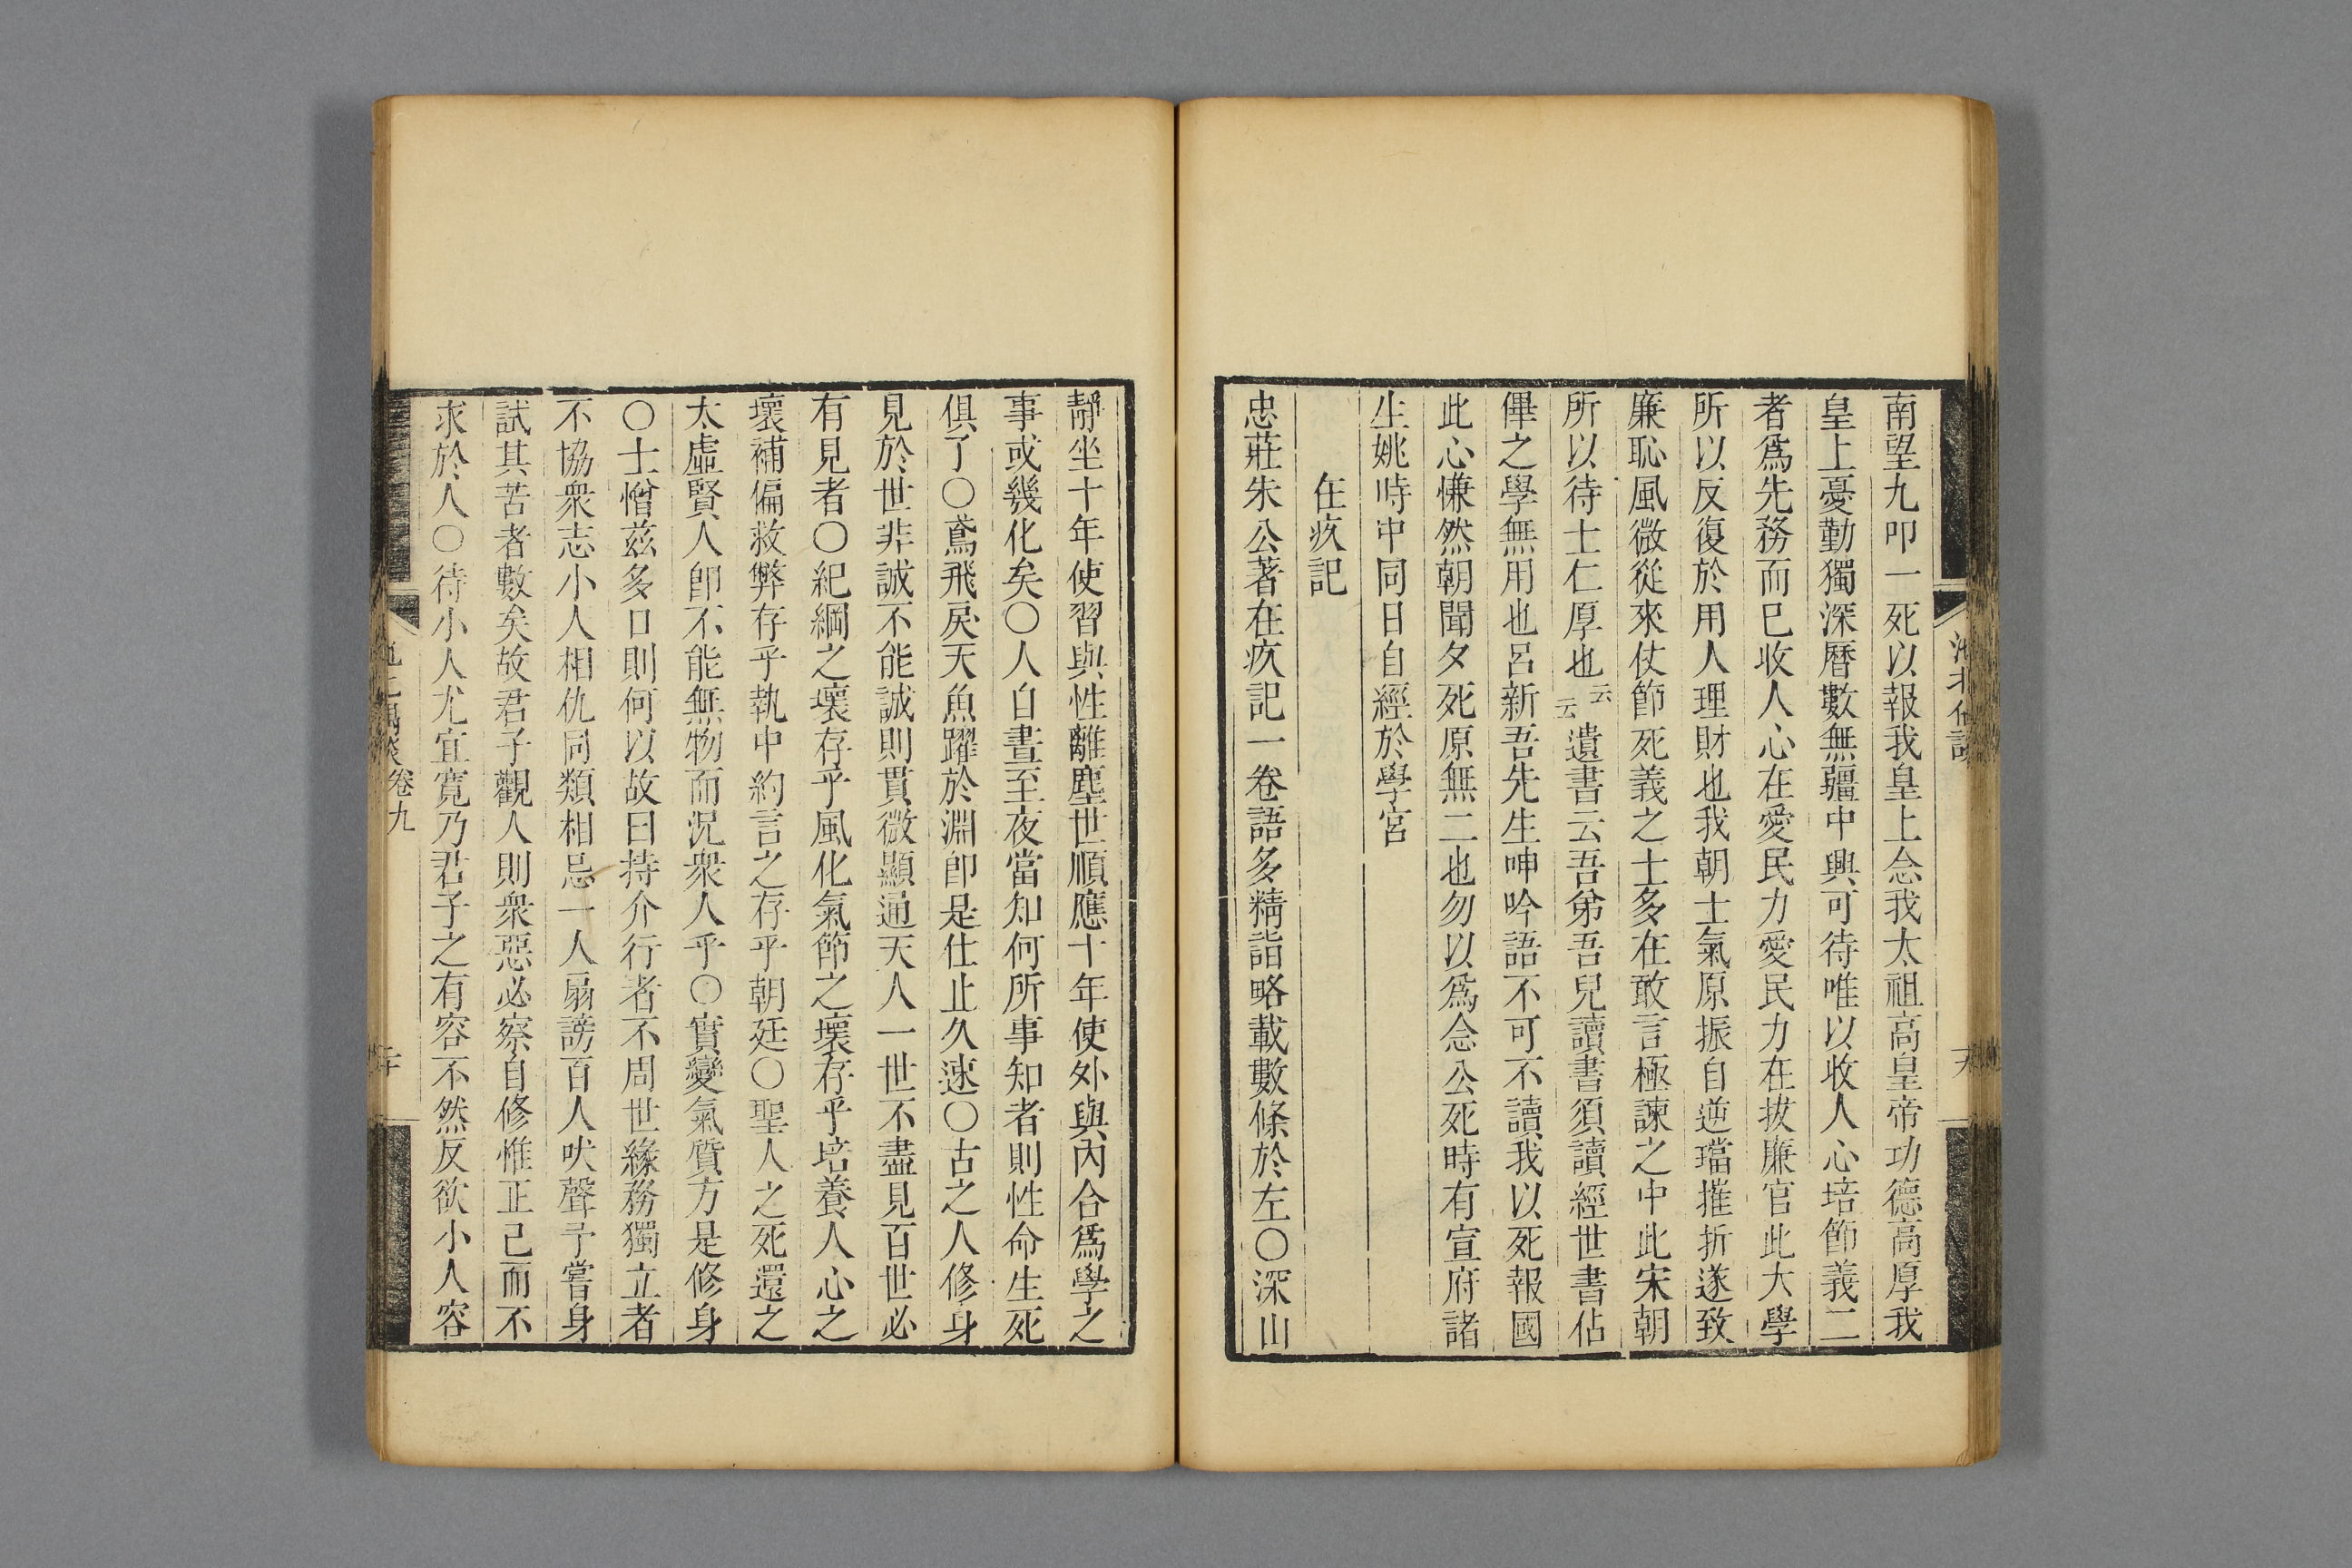 南望九叩一死以報我皇上念我太祖高皇帝功德高厚我
皇上憂勤獨深曆數無疆中興可待唯以收人心培節義二
者爲先務而已收人心在愛民力愛民力在拔廉官此大學
所以反復於用人理財也我朝士氣原振自逆璫摧折遂致
廉恥風微從來仗節死義之士多在敢言極諫之中此宋朝
所以待士仁厚也云云遺書云吾弟吾兒讀書須讀經世書佔
俾之學無用也呂新吾先生呻吟語不可不讀我以死報國
此心慊然朝聞夕死原無二也勿以爲念公死時有宣府諸
生姚時中同日自經於學宮
在疚記
忠莊朱公著在疚記一卷語多精詣略載數條於左〇深山
靜坐十年使習與性離塵世順應十年使外與內合爲學之
事或幾化矣〇人自晝至夜當知何所事知者則性命生死
俱了〇鳶飛戾天魚躍於淵卽是仕止久速〇古之人修身
見於世非誠不能誠則貫微顯通天人一世不盡見百世必
有見者〇紀綱之壞存乎風化氣節之壞存乎培養人心之
壞補偏救弊存乎執中約言之存乎朝廷〇聖人之死還之
太虛賢人卽不能無物而況衆人乎〇實變氣質方是修身
〇士憎茲多口則何以故曰持介行者不周世緣務獨立者
不協衆志小人相仇同類相忌一人扇謗百人吠聲予嘗身
試其苦者數矣故君子觀人則衆惡必察自修惟正己而不
求於人〇待小人尤宜寬乃君子之有容不然反欲小人容
卷九